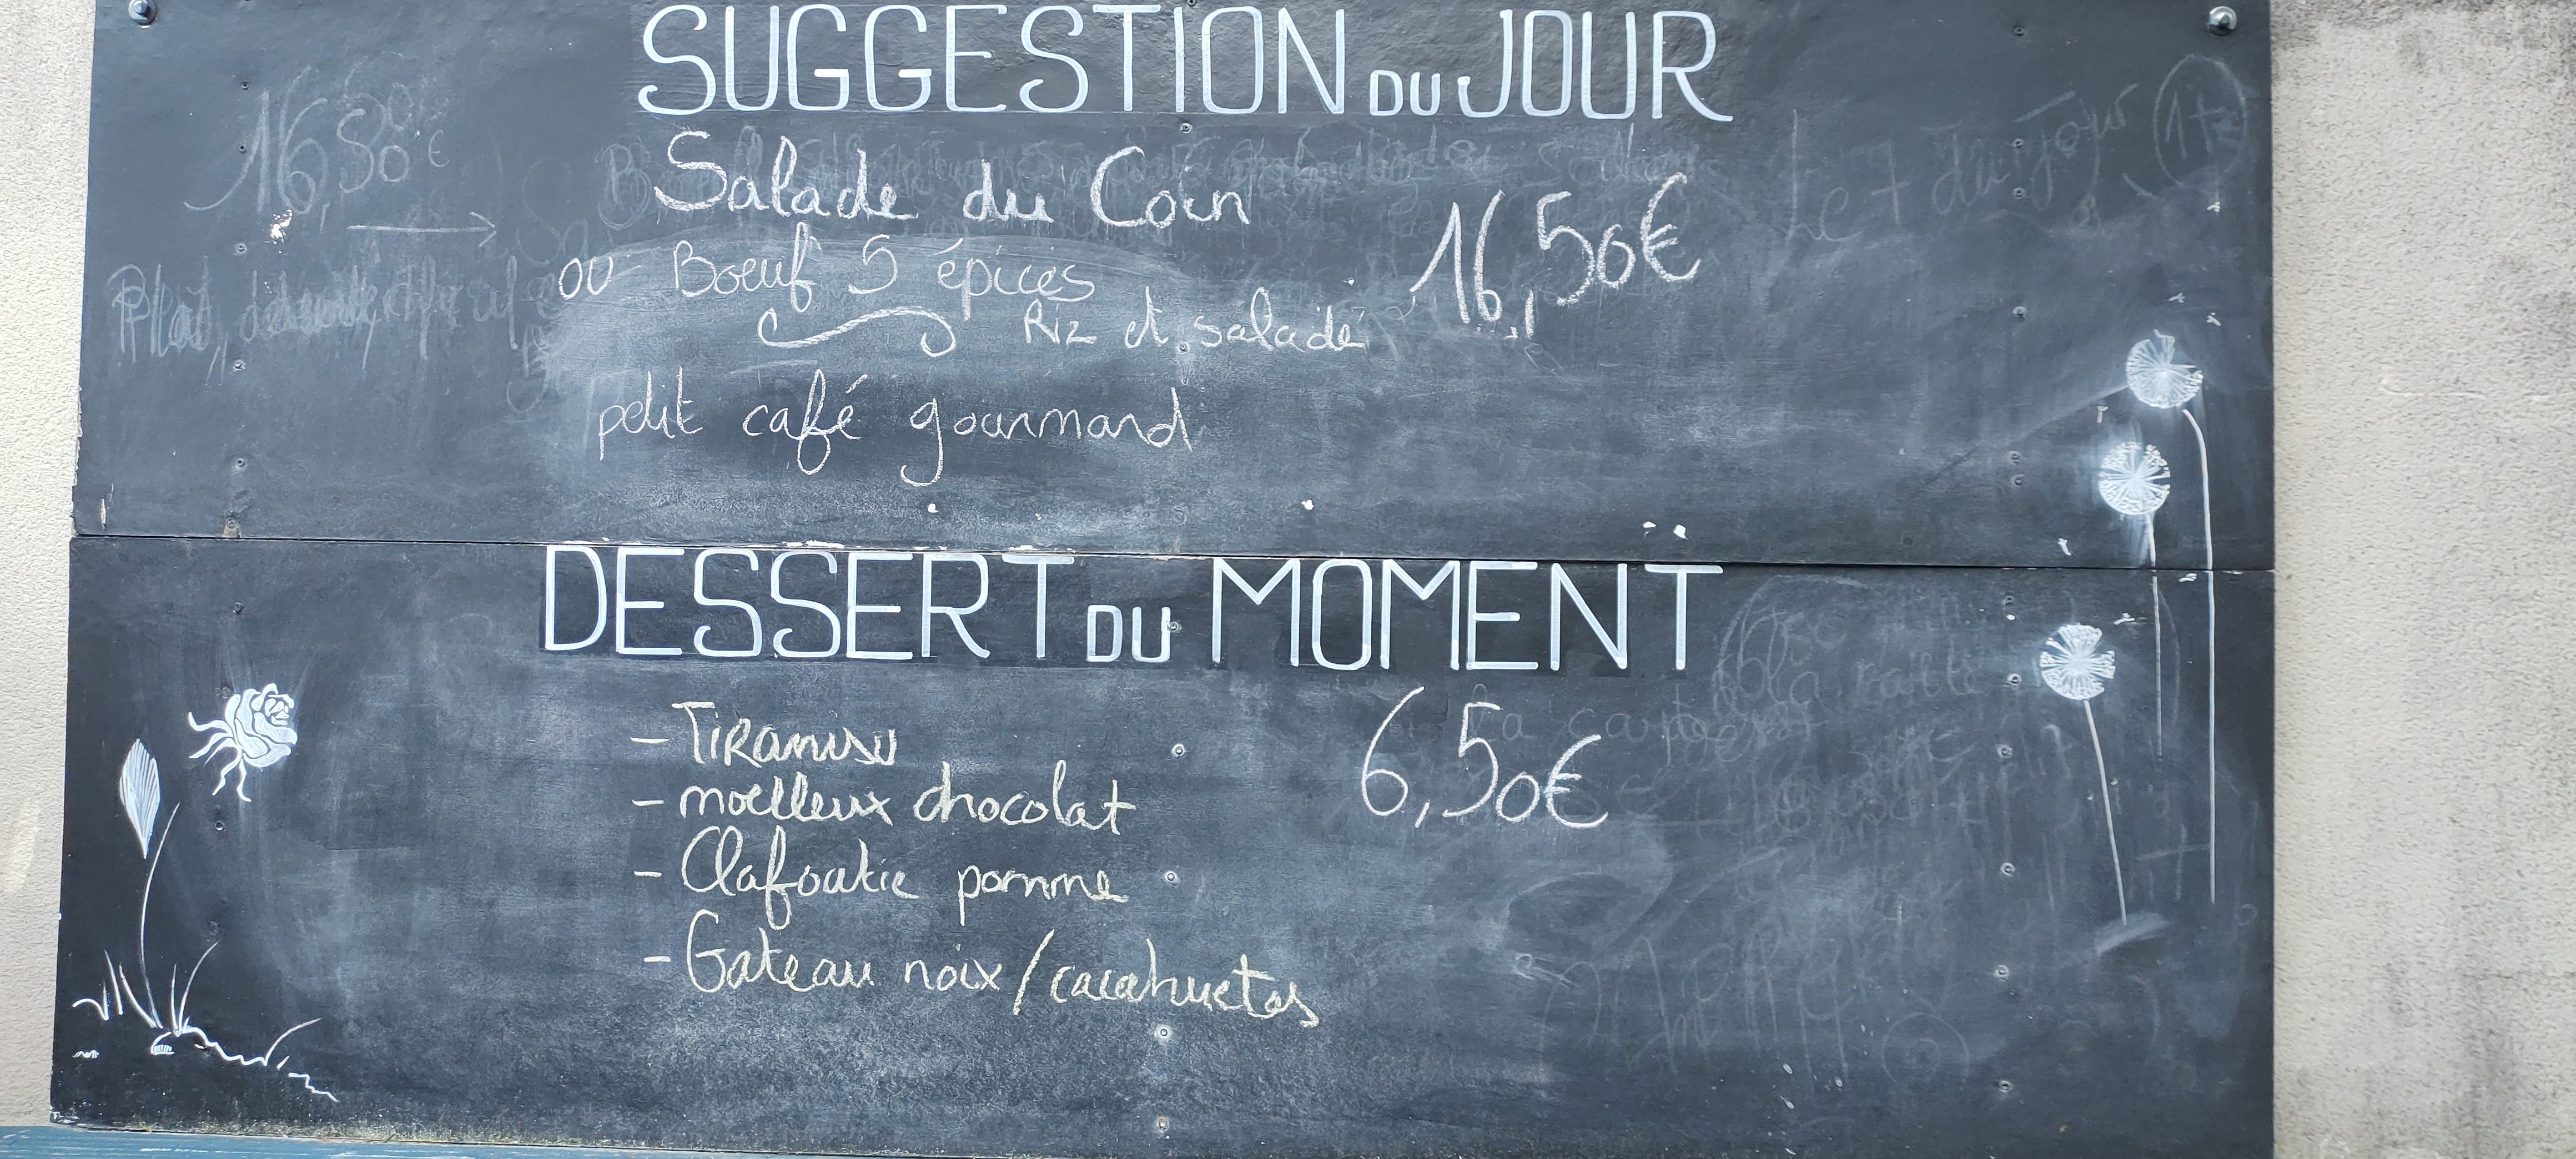 SUGGESTION DU JOUR
16,50€
Salade du Coin
16,50€
ou Boeuf 5 épices
Riz et salade
petit café gourmand
Le 7 du jour
DESSERT DU MOMENT
- Tiramisu
6,50€
- moelleux chocolat
- Clafoutie pomme
- Gateau noix/cacahuetes
la carte